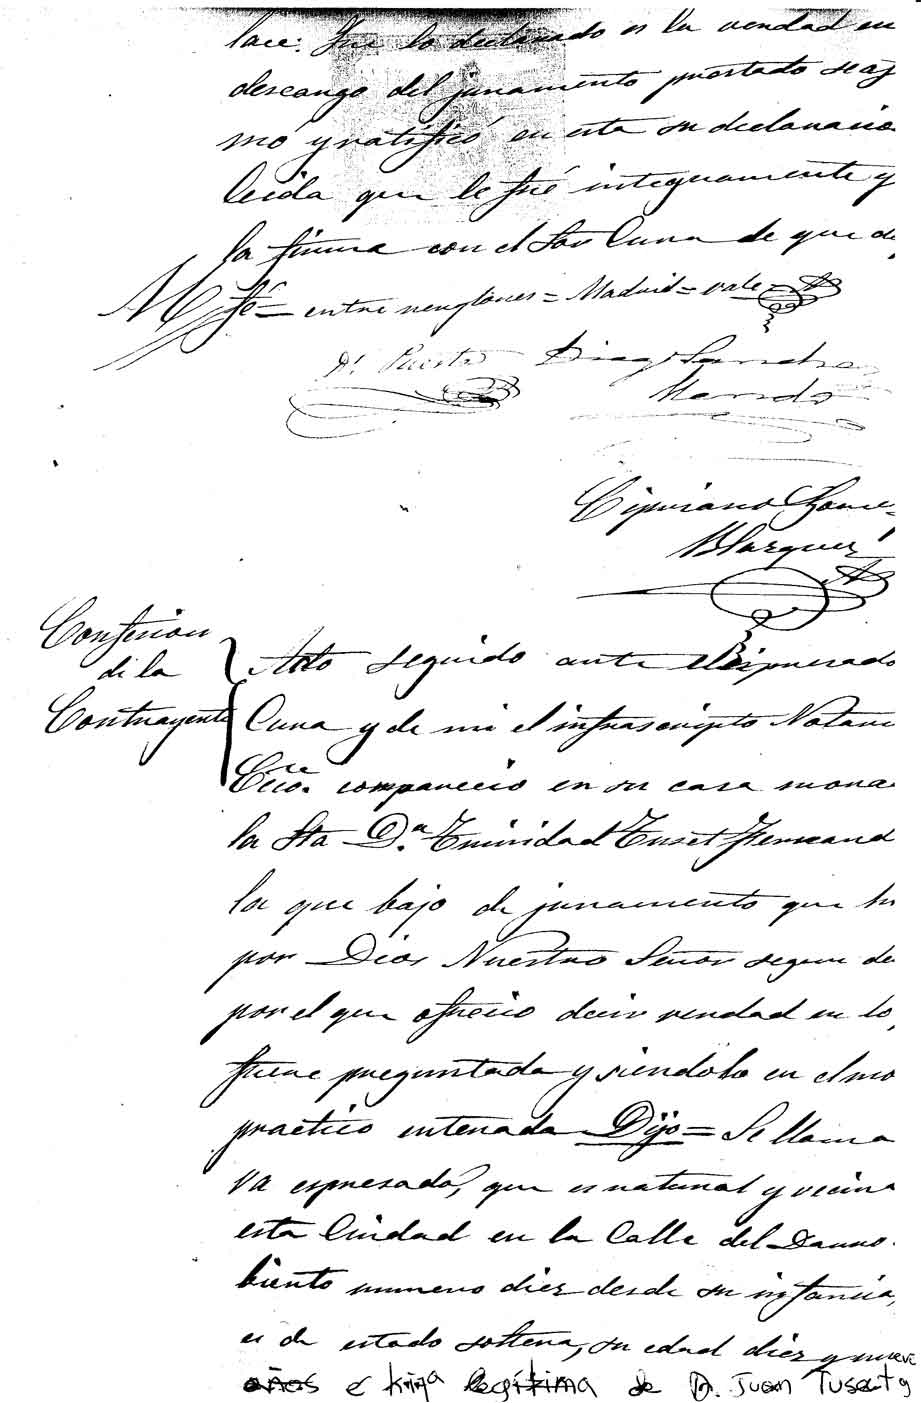 lace: Que lo declarado es la verdad en
descargo del juramento prestado se afir
mó y ratificó en esta su declaracio
leida que le fué integramente y
la firma con el Sor Cura de que do
fé = entre renglones = Madrid = vale =
Dr. Puerta Diego Sanchez
Cipriano Gomez
Blazquez
Confesion
de la
Contrayente
Acto seguido ante el espresado
Cura y de mi el infrascripto Notario
Ecco. comparecio en su casa mora
la Sta D.ª Trinidad Tuset Hernand
la que bajo de juramento que hi
por Dios Nuestro Señor segun de
por el que ofrecio decir verdad en lo
fuere preguntada y siendolo en el mo
practico enterada Dijo = Se llama
va espresado, que es natural y vecina
esta Ciudad en la Calle del Darro
biento numero diez desde su infancia,
es de estado soltera, su edad diez y nueve
años e hija legítima de D. Juan Tuset y